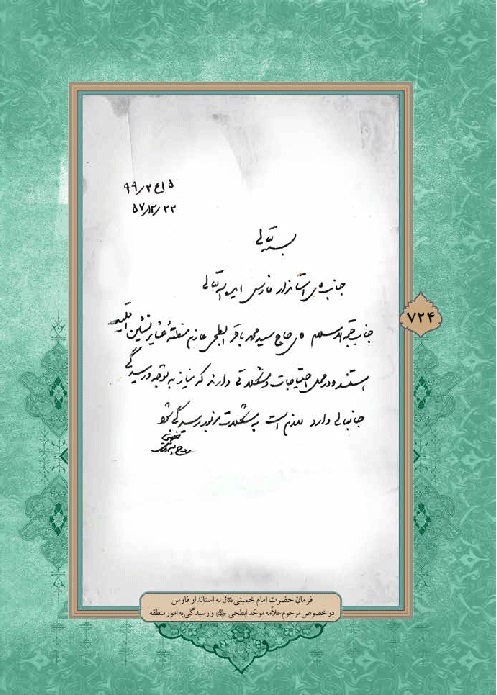 ۱۵/ع۲/۹۹
۵۷/۱۲/۲۳
بسمه تعالی
جناب آقای استاندار فارس ایده الله تعالی
جناب حجة الاسلام آقای حاج سید محمد باقر ابطحی عازم منطقه عشایر نشین
هستند و در محل احتیاجات و مشکلاتی دارند که نیاز به توجه و رسیدگی
جنابعالی دارد لازم است به مشکلات مزبور رسیدگی شود
۷۲۴
فرمان حضرت امام خمینی به استاندار فارس
در خصوص مرحوم علامه موحد ابطحی و رسیدگی به امور منطقه